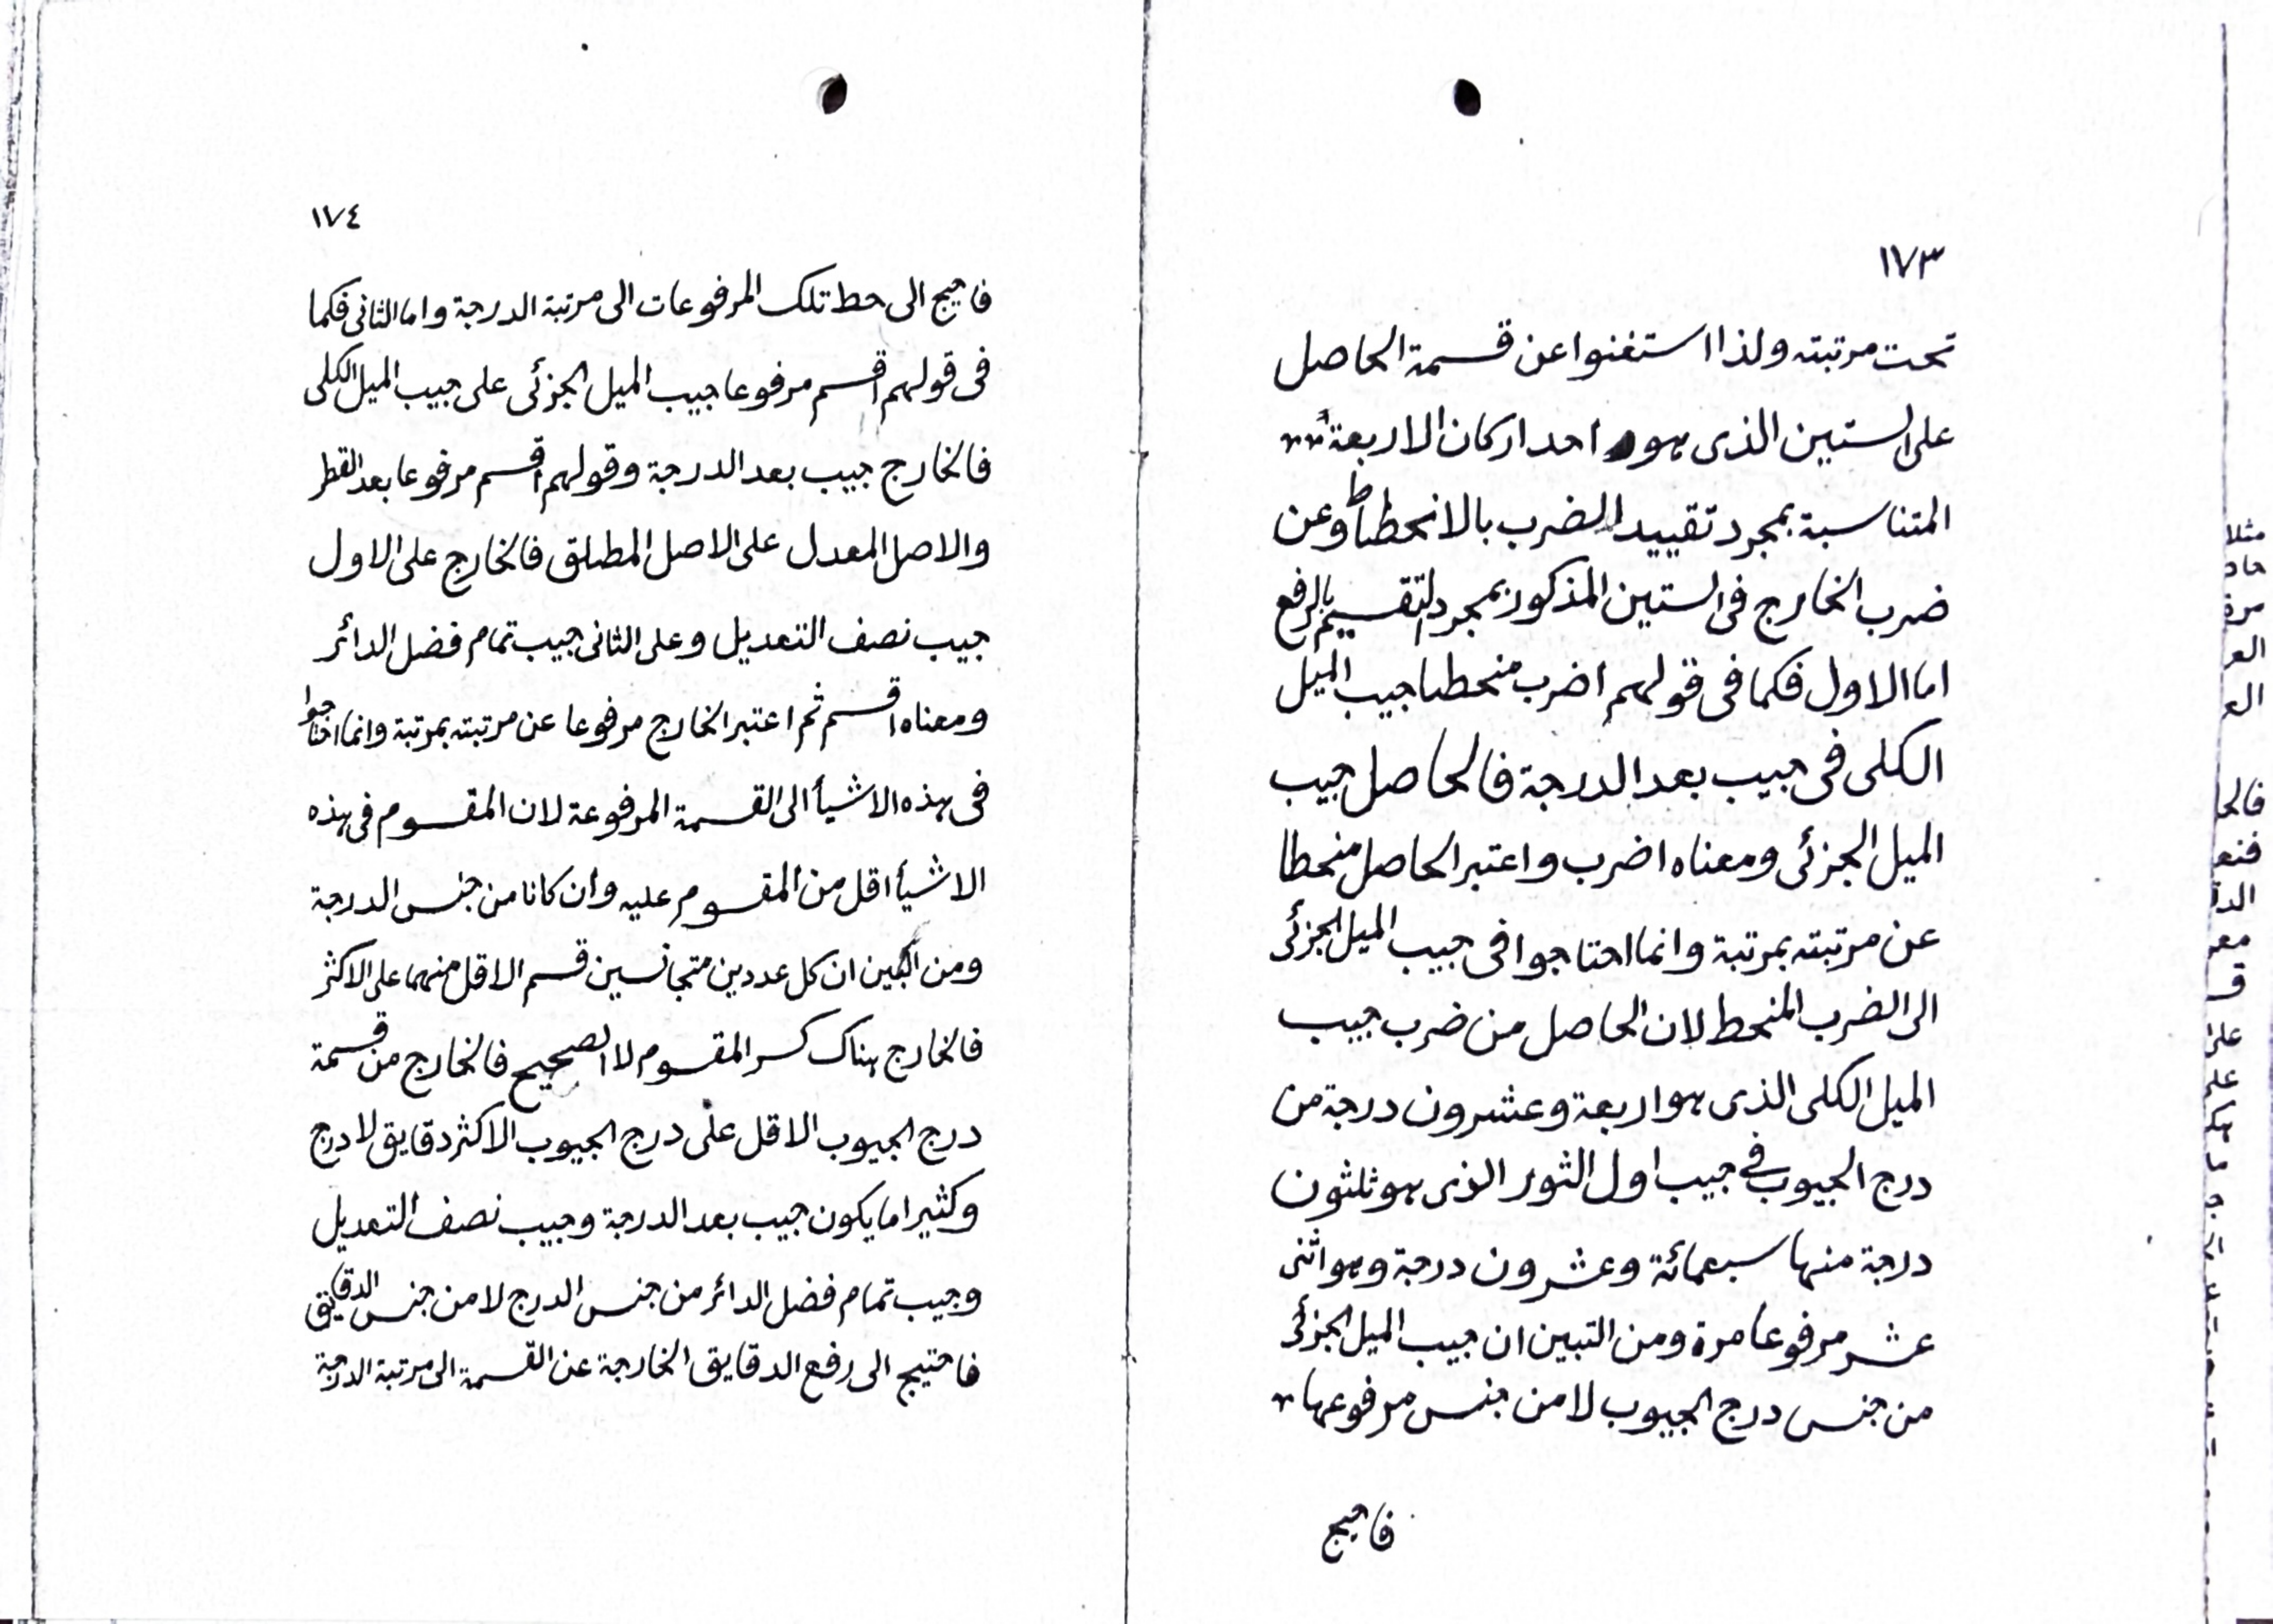 ١٧٣
تحت مرتبته ولذا استغنوا عن قسمة الحاصل
على الستين الذى هو احد اركان الاربعة
المتناسبة بمجرد تقييد الضرب بالانحطاط وعن
ضرب الخارج فى الستين المذكور بمجرد التقسيم بالرفع
اما الاول فكما فى قولهم اضرب منحطا جيب الميل
الكلى فى جيب بعد الدرجة فالحاصل جيب
الميل الجزئى ومعناه اضرب واعتبر الحاصل منحطا
عن مرتبته بمرتبة وانما احتاجوا فى جيب الميل الجزئى
الى الضرب المنحط لان الحاصل من ضرب جيب
الميل الكلى الذى هو اربعة وعشرون درجة من
درج الجيوب فى جيب اول الثور الذى هو ثلثون
درجة منها سبعمائة وعشرون درجة وهو اثنى
عشر مرفوعا مرة ومن التبين ان جيب الميل الجزئى
من جنس درج الجيوب لا من جنس مرفوعها
فاحتيج
١٧٤
فاحتيج الى حط تلك المرفوعات الى مرتبة الدرجة واما الثانى فكما
فى قولهم اقسم مرفوعا جيب الميل الجزئى على جيب الميل الكلى
فالخارج جيب بعد الدرجة وقولهم اقسم مرفوعا بعد القطر
والاصل المعدل على الاصل المطلق فالخارج على الاول
جيب نصف التعديل وعلى الثانى جيب تمام فضل الدائر
ومعناه اقسم ثم اعتبر الخارج مرفوعا عن مرتبته بمرتبة وانما احتاجوا
فى هذه الاشيأ الى القسمة المرفوعة لان المقسوم فى هذه
الاشيأ اقل من المقسوم عليه وان كانا من جنس الدرجة
ومن البين ان كل عددين متجانسين قسم الاقل منهما على الاكثر
فالخارج هناك كسر المقسوم لا الصحيح فالخارج من قسمة
درج الجيوب الاقل على درج الجيوب الاكثر دقايق لا درج
وكثيرا ما يكون جيب بعد الدرجة وجيب نصف التعديل
وجيب تمام فضل الدائر من جنس الدرج لا من جنس الدقايق
فاحتيج الى رفع الدقايق الخارجة عن القسمة الى مرتبة الدرجة